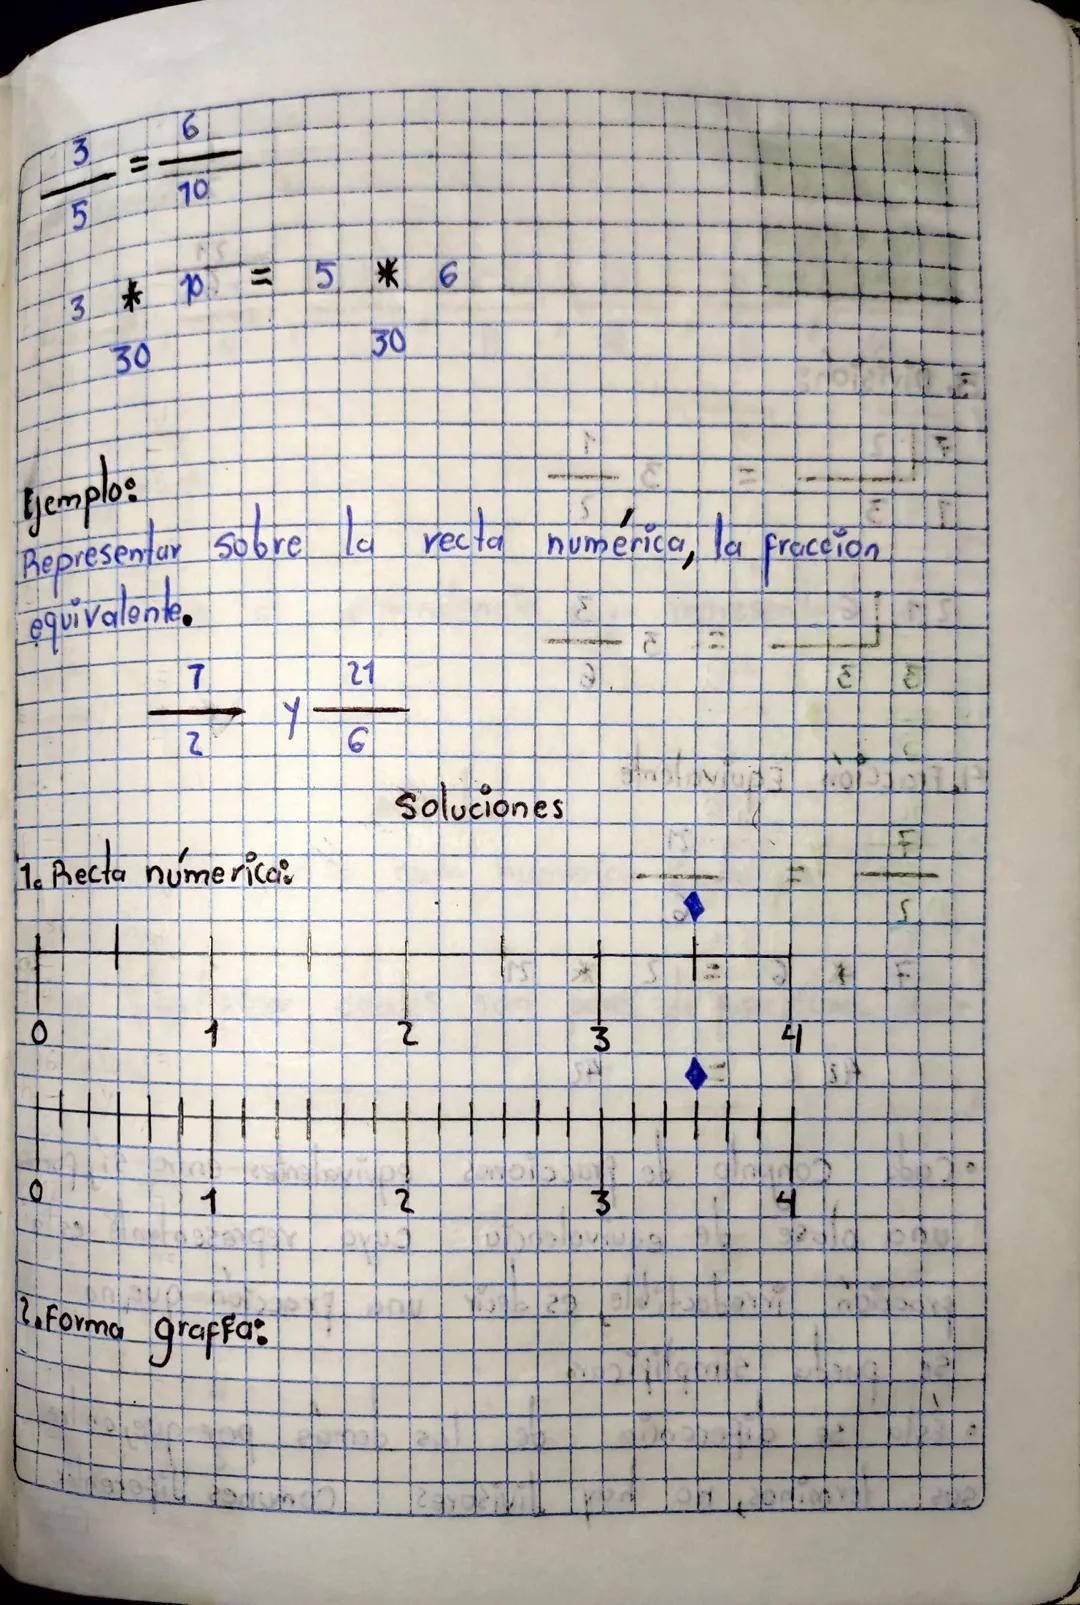 3/5 = 6/10
3 * 10 = 5 * 6
30 30
Ejemplo:
Representar sobre la recta númerica, la fraccion
equivalente.
7/2 y 21/6
Soluciones
1. Recta númerica:
0 1 2 3 4
0 1 2 3 4
2. Forma graffa: